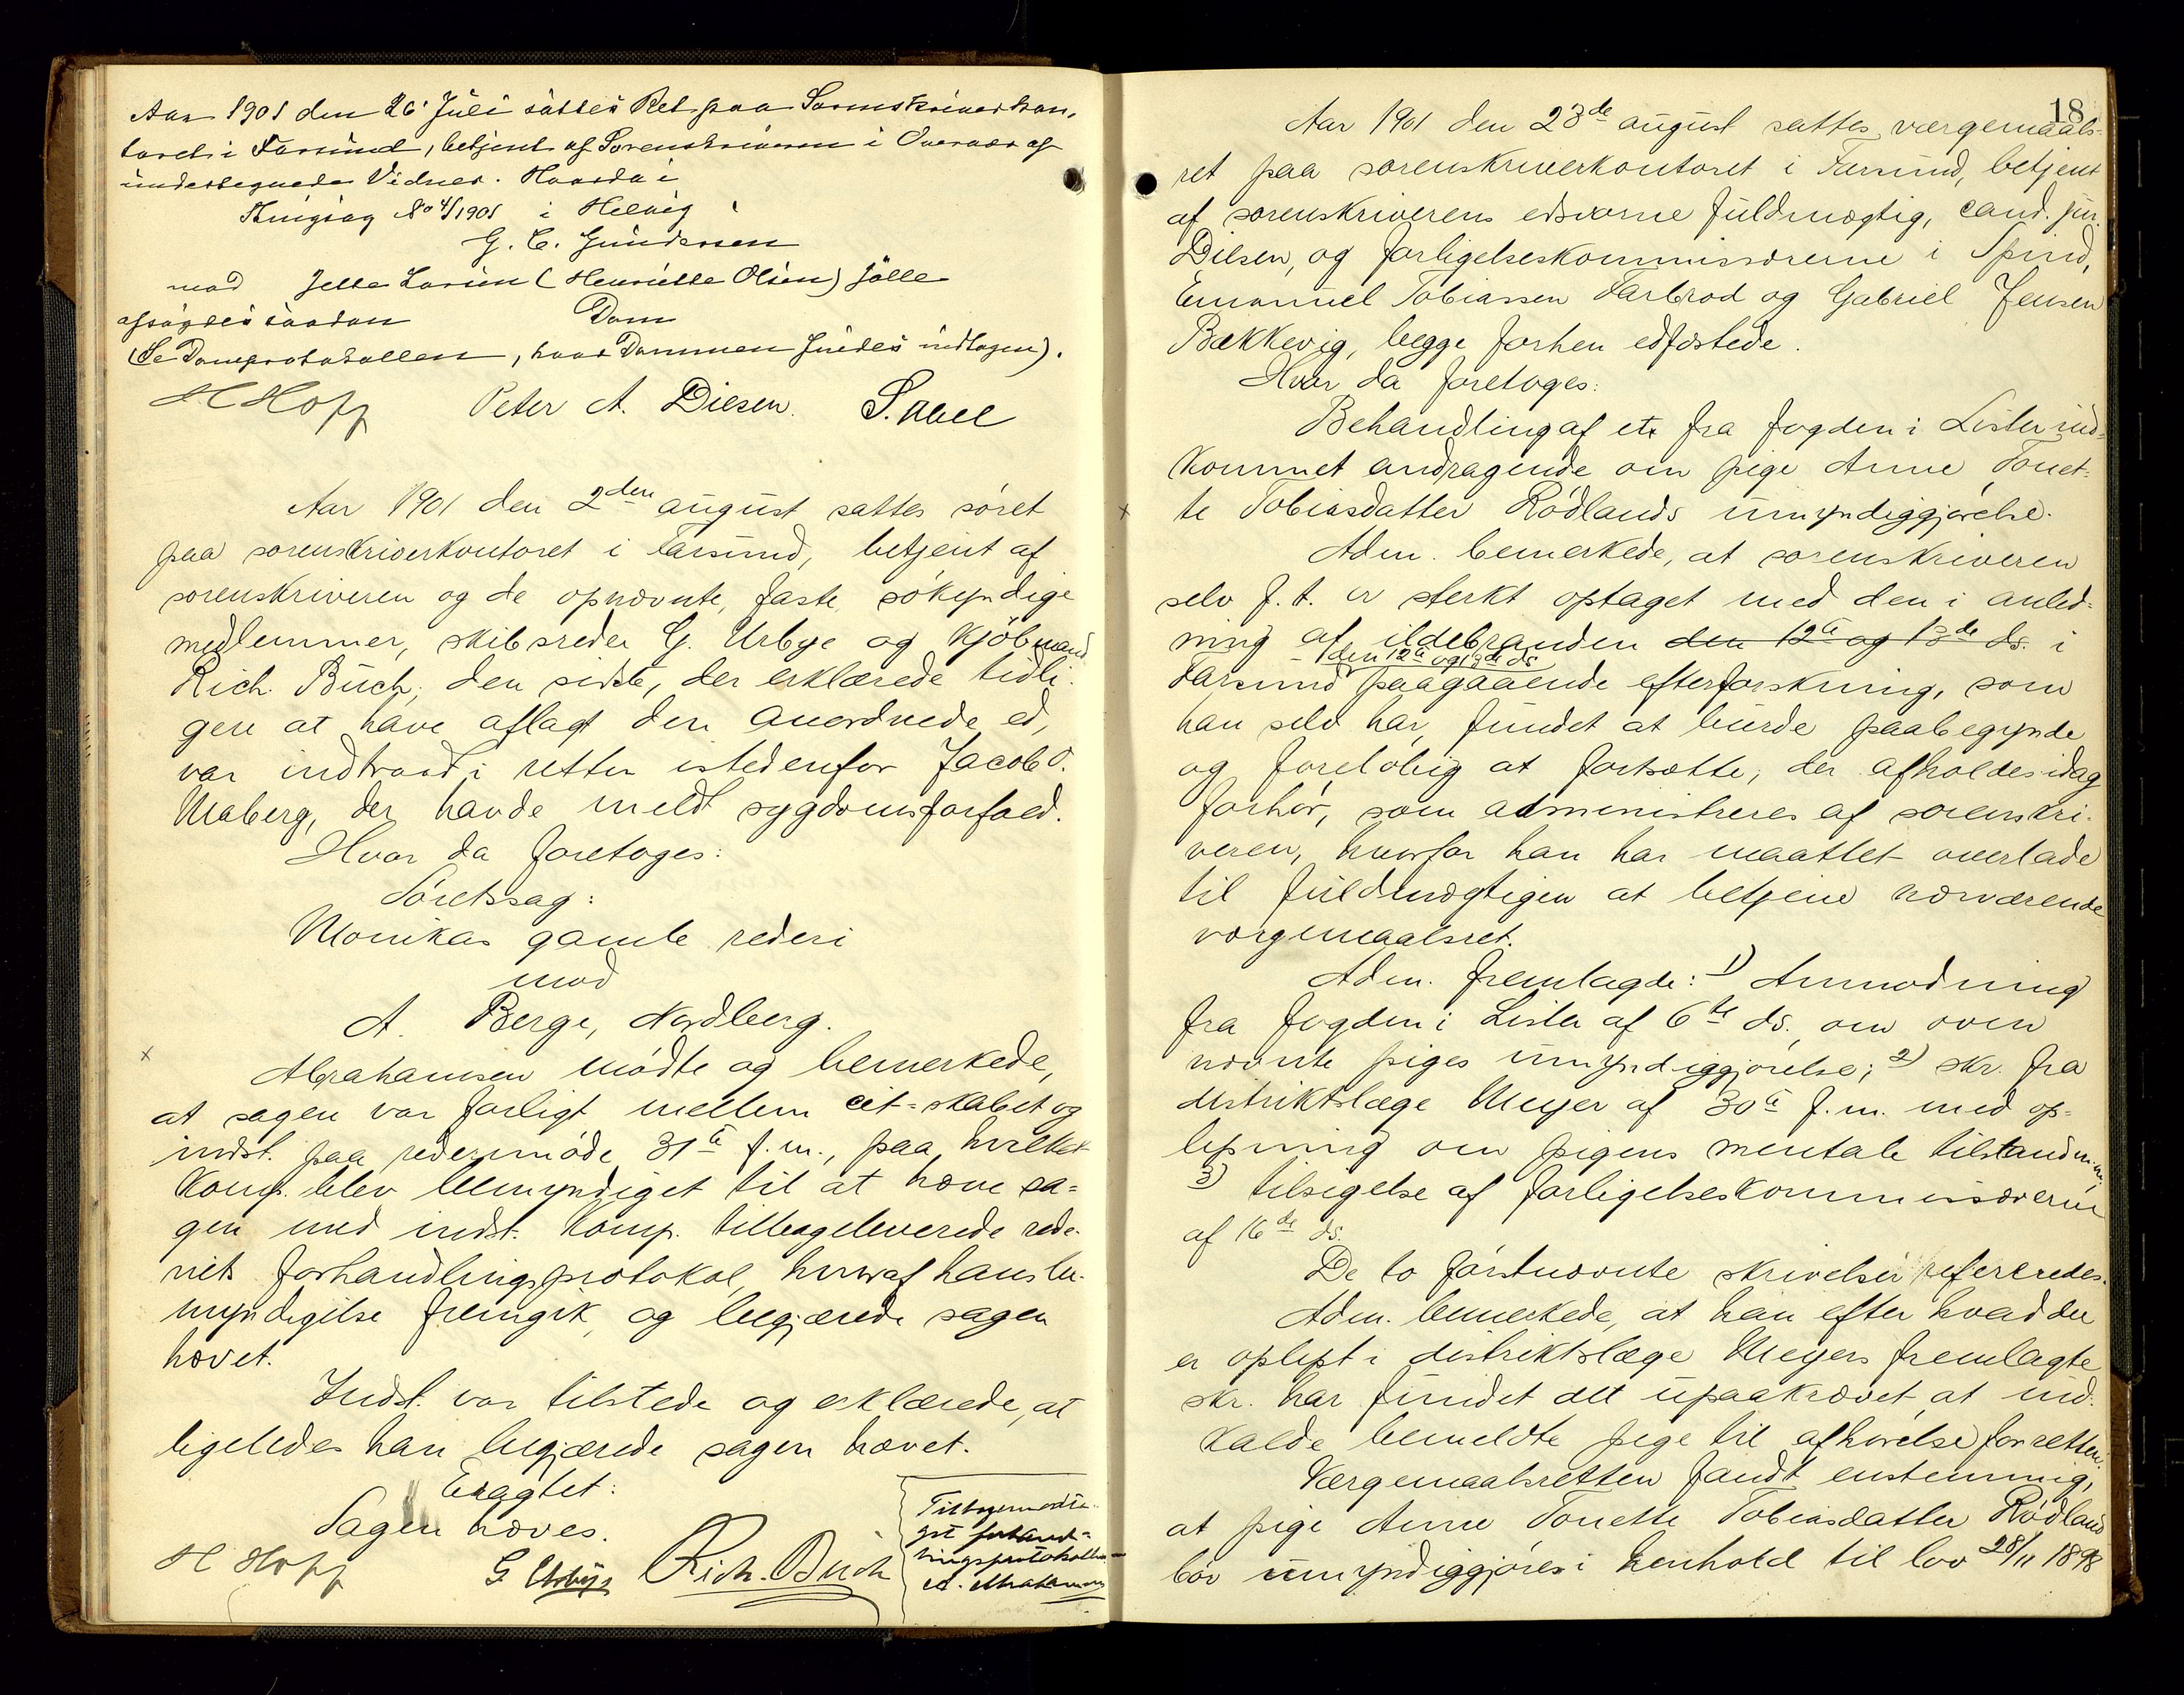 Aar 1901 den 26' Juli sattes Ret paa Sorenskriverkon-
toret i Farsund, betjent af Sorenskriveren i Overvær af
undertegnede Vidner. Hvorda i
Thingsag No 4/1901 i Helvig
G. C. Gundersen
mod Jette Larsen (Henriette Olsen) Jölle
afsagdes saadan Dom
(Se Domprotokollen, hvor Dommen findes indtagen).
H Hopp Peter A. Diesen. S. Abel
Aar 1901 den 2den august sattes søret
paa sorenskriverkontoret i Farsund, betjent af
sorenskriveren og de opnævnte, faste, søkyndige
medlemmer, skibsreder G. Urbye og kjöbmand
Rich. Buch, den sidste, der erklærede tidli-
gere at have aflagt den anordnede ed,
var indtraadt i retten istedenfor Jacob O.
Maberg, der havde meldt sygdomsforfald.
Hvor da foretoges:
Søretssag:
Monikas gamle rederi
mod
A. Berge, Nordberg.
x
Abrahamsen mödte og bemerkede,
at sagen var forligt mellem cit-skabet og
indst. paa rederimöde 31te f. m., paa hvilket
komp. blev bemyndiget til at hæve sa-
gen med indst. Komp. tilbageleverede rede-
riets forhandlingsprotokol, hvoraf hans be-
myndigelse fremgik, og begjærede sagen
hævet.
Indst. var tilstede og erklærede, at
ligeledes han begjærede sagen hævet.
Eragtet:
Sagen hæves.
H Hopp G Urbye Rich. Buch
Tilbagemodta-
get forhand-
lingsprotokollen
A. Abrahamsen
18
Aar 1901 den 23de august sattes værgemaals-
ret paa sorenskriverkontoret i Farsund, betjent
af sorenskriverens edsvorne fuldmægtig, cand. jur.
Diesen, og forligelseskommissærerne i Spind,
Emanuel Tobiassen Farbrod og Gabriel Jensen
Bækkevig, begge forhen edfæstede.
Hvor da foretoges:
Behandling af et fra fogden i Lister ind-
kommet andragende om pige Anne Tonet-
x te Tobiasdatter Rödlands umyndiggjørelse.
Adm. bemerkede, at sorenskriveren
selv f. t. er sterkt optaget med den i anled-
ning af ildebranden den 12te og 13de ds. i
den 12te og 13de ds
Farsund paagaaende efterforskning, som
han selv har fundet at burde paabegynde
og foreløbig at fortsætte; der afholdes idag
forhör, som administreres af sorenskri-
veren, hvorfor han har maattet overlade
til fuldmægtigen at betjene nærværende
værgemaalsret.
Adm. fremlagde: 1) Anmodning
fra fogden i Lister af 6te ds. om oven
nævnte piges umyndiggjørelse; 2) skr. fra
distriktslæge Meyer af 30te f. m. med op-
lysning om pigens mentale tilstand m. m.
3) tilsigelse af forligelseskommissærerne
af 16de ds.
De to førstnævnte skrivelser refereredes.
Adm. bemerkede, at han efter hvad der
er oplyst i distriktslæge Meyers fremlagte
skr. har fundet det upaakrævet at ind-
kalde bemeldte pige til afhørelse for retten.
Værgemaalsretten fandt enstemmig,
at pige Anne Tonette Tobiasdatter Rødland
bør umyndiggjøres i henhold til lov 28/11 1898